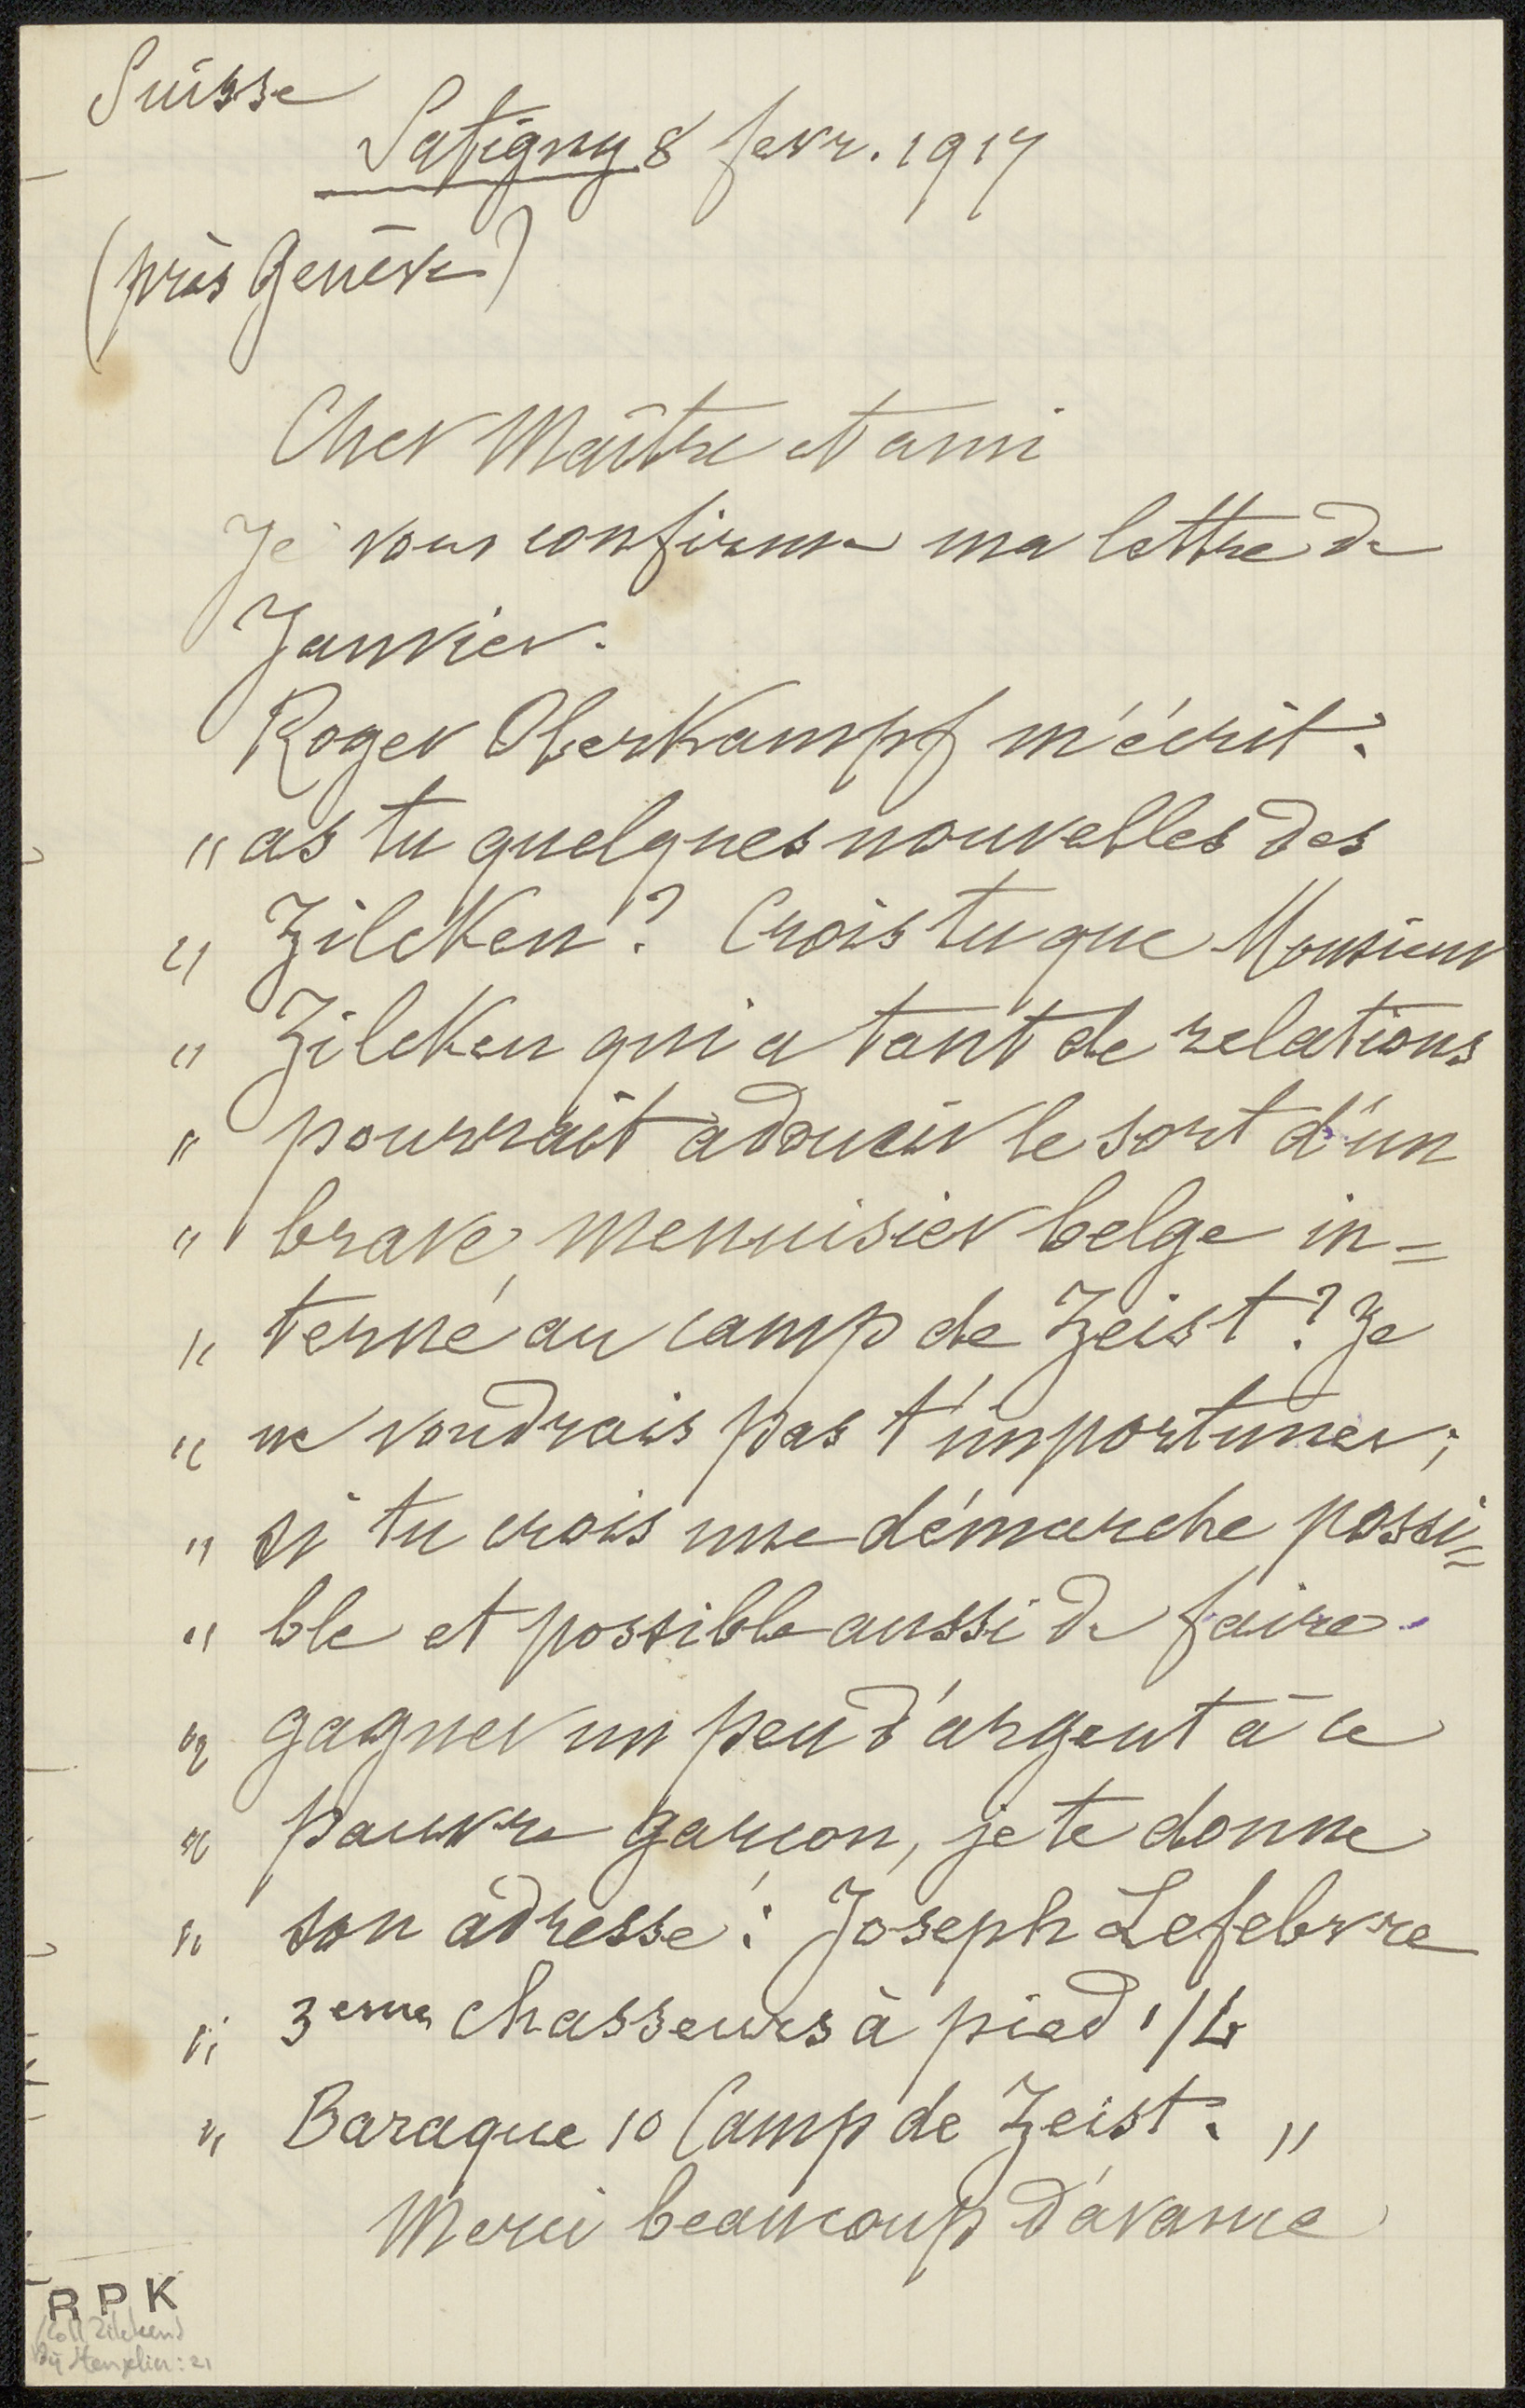 Suisse
Satigny 8 fevr. 1917
(près Genève)
Cher Maître et ami
Je vous confirme ma lettre de
Janvier.
Roger Oberkampf m'écrit :
" as tu quelques nouvelles des
" Zilcken ? Crois tu que Monsieur
" Zilcken qui a tant de relations
" pourrait adoucir le sort d'un
" brave menuisier belge in=
" terné au camp de Zeist ? Je
" ne voudrais pas t'importuner ;
" si tu crois une démarche possi=
" ble et possible aussi de faire
" gagner un peu d'argent à ce
" pauvre garçon, je te donne
" son adresse : Joseph Lefebvre
" 3eme chasseurs à pied 1/4
" Baraque 10 Camp de Zeist. "
Merci beaucoup d'avance
RPK
(Coll Zilcken)